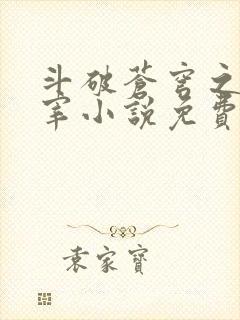 斗破蒼穹之
宰小說免費
袁家寶